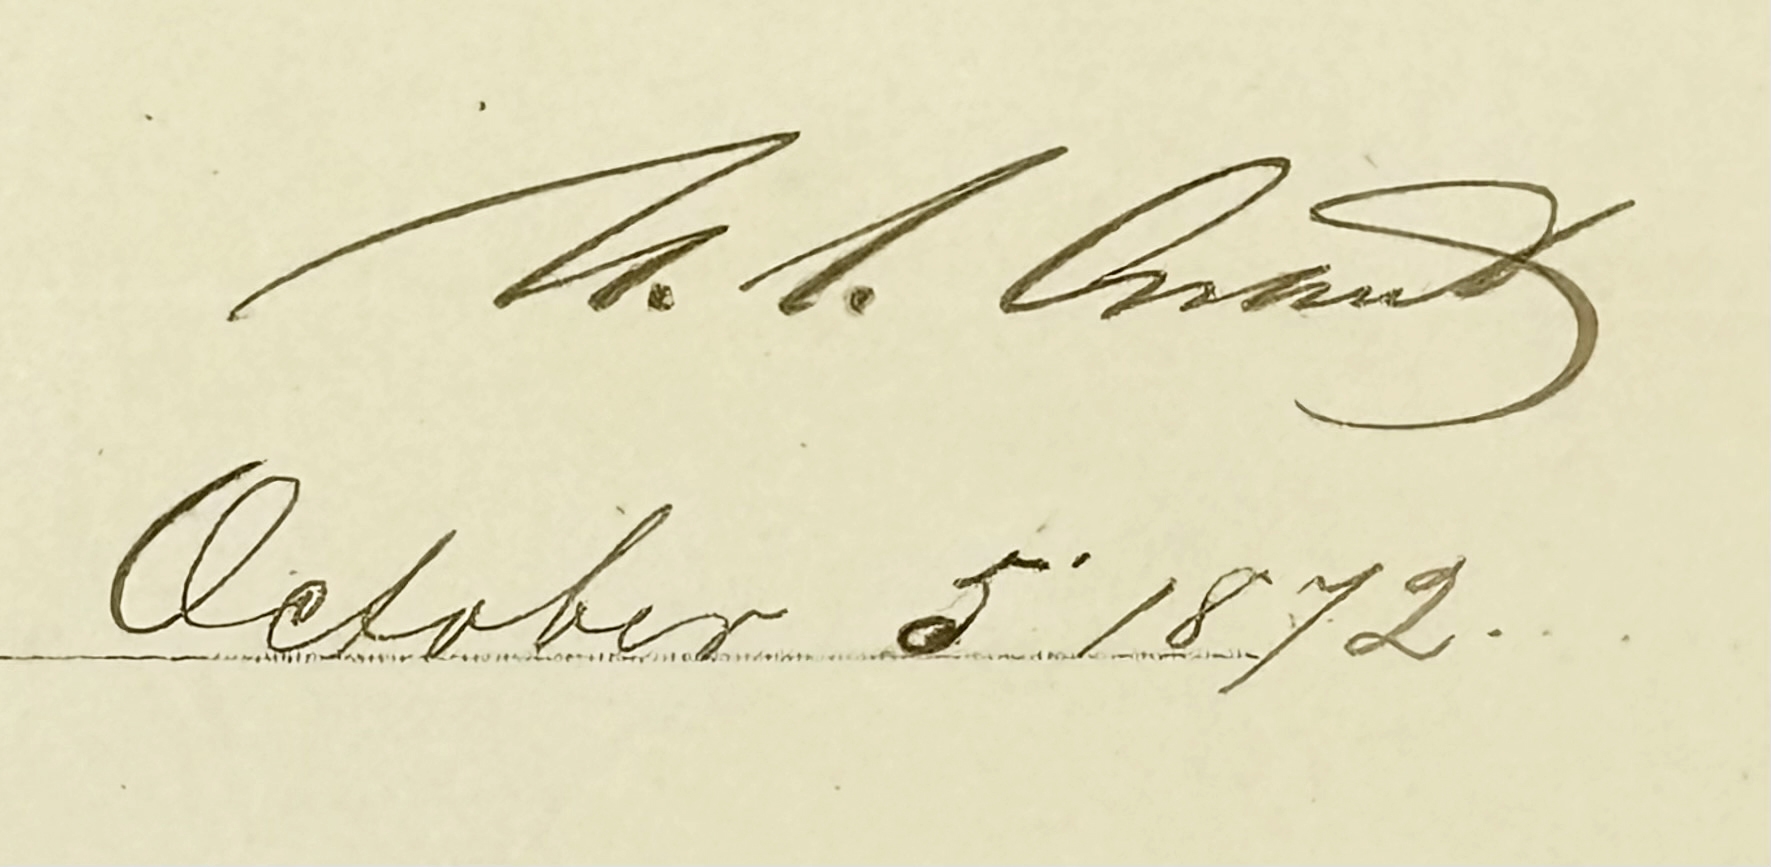 U. S. Grant
October 5 1872.